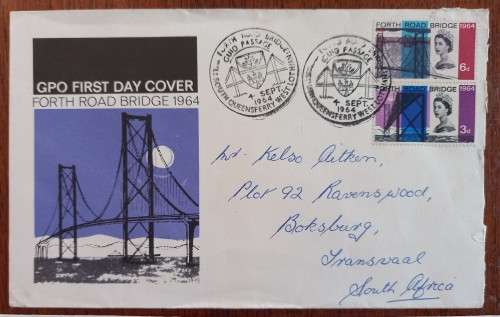 GPO FIRST DAY COVER
FORTH ROAD BRIDGE 1964
FORTH ROAD BRIDGE
QUEENSFERRY WEST LOTHIAN
4 SEPT.
1964
FORTH ROAD BRIDGE
QUEENSFERRY WEST
4 SEPT.
1964
FORTH ROAD BRIDGE 1964
6d
FORTH ROAD BRIDGE 1964
3d
Mr. Kelso Aitken,
Plot 92 Ravenswood,
Boksburg,
Transvaal
South Africa